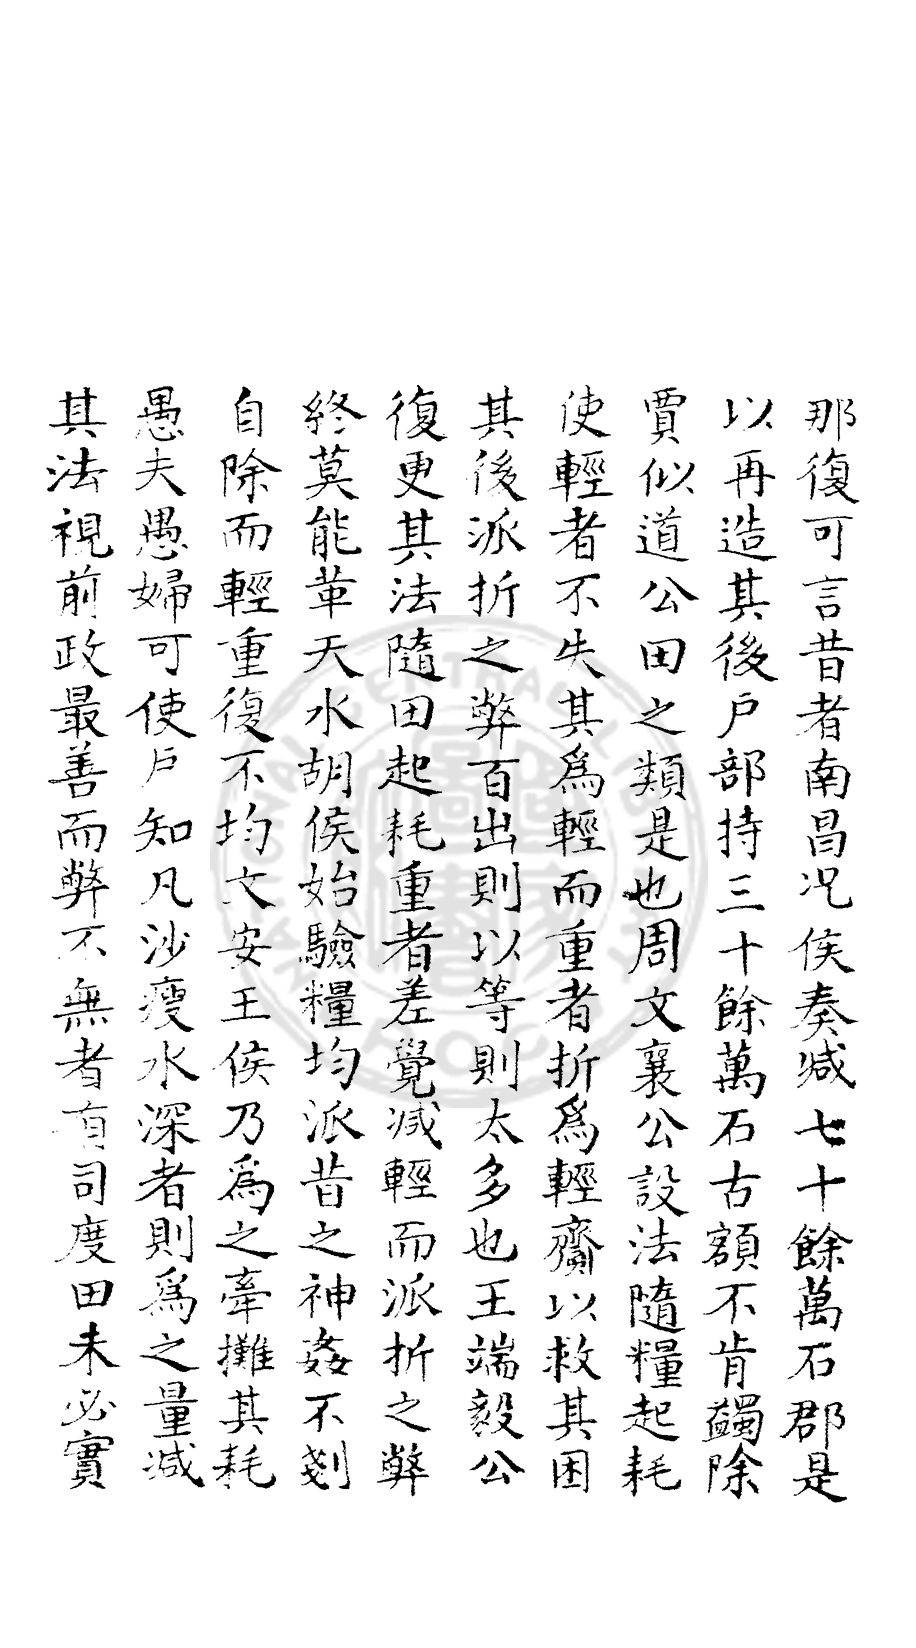 那復可言昔者南昌况侯奏减七十餘萬石郡是
以再造其後戶部持三十餘萬石古額不肯蠲除
賈似道公田之類是也周文襄公設法隨糧起耗
使輕者不失其爲輕而重者折爲輕齎以救其困
其後派折之弊百出則以等則太多也王端毅公
復更其法隨田起耗重者差覺减輕而派折之弊
終莫能革天水胡侯始驗糧均派昔之神姦不剗
自除而輕重復不均文安王侯乃爲之牽攤其耗
愚夫愚婦可使戶知凡沙瘦水深者則爲之量减
其法視前政最善而弊不無者有司度田未必實
CENTRAL LIBRARY